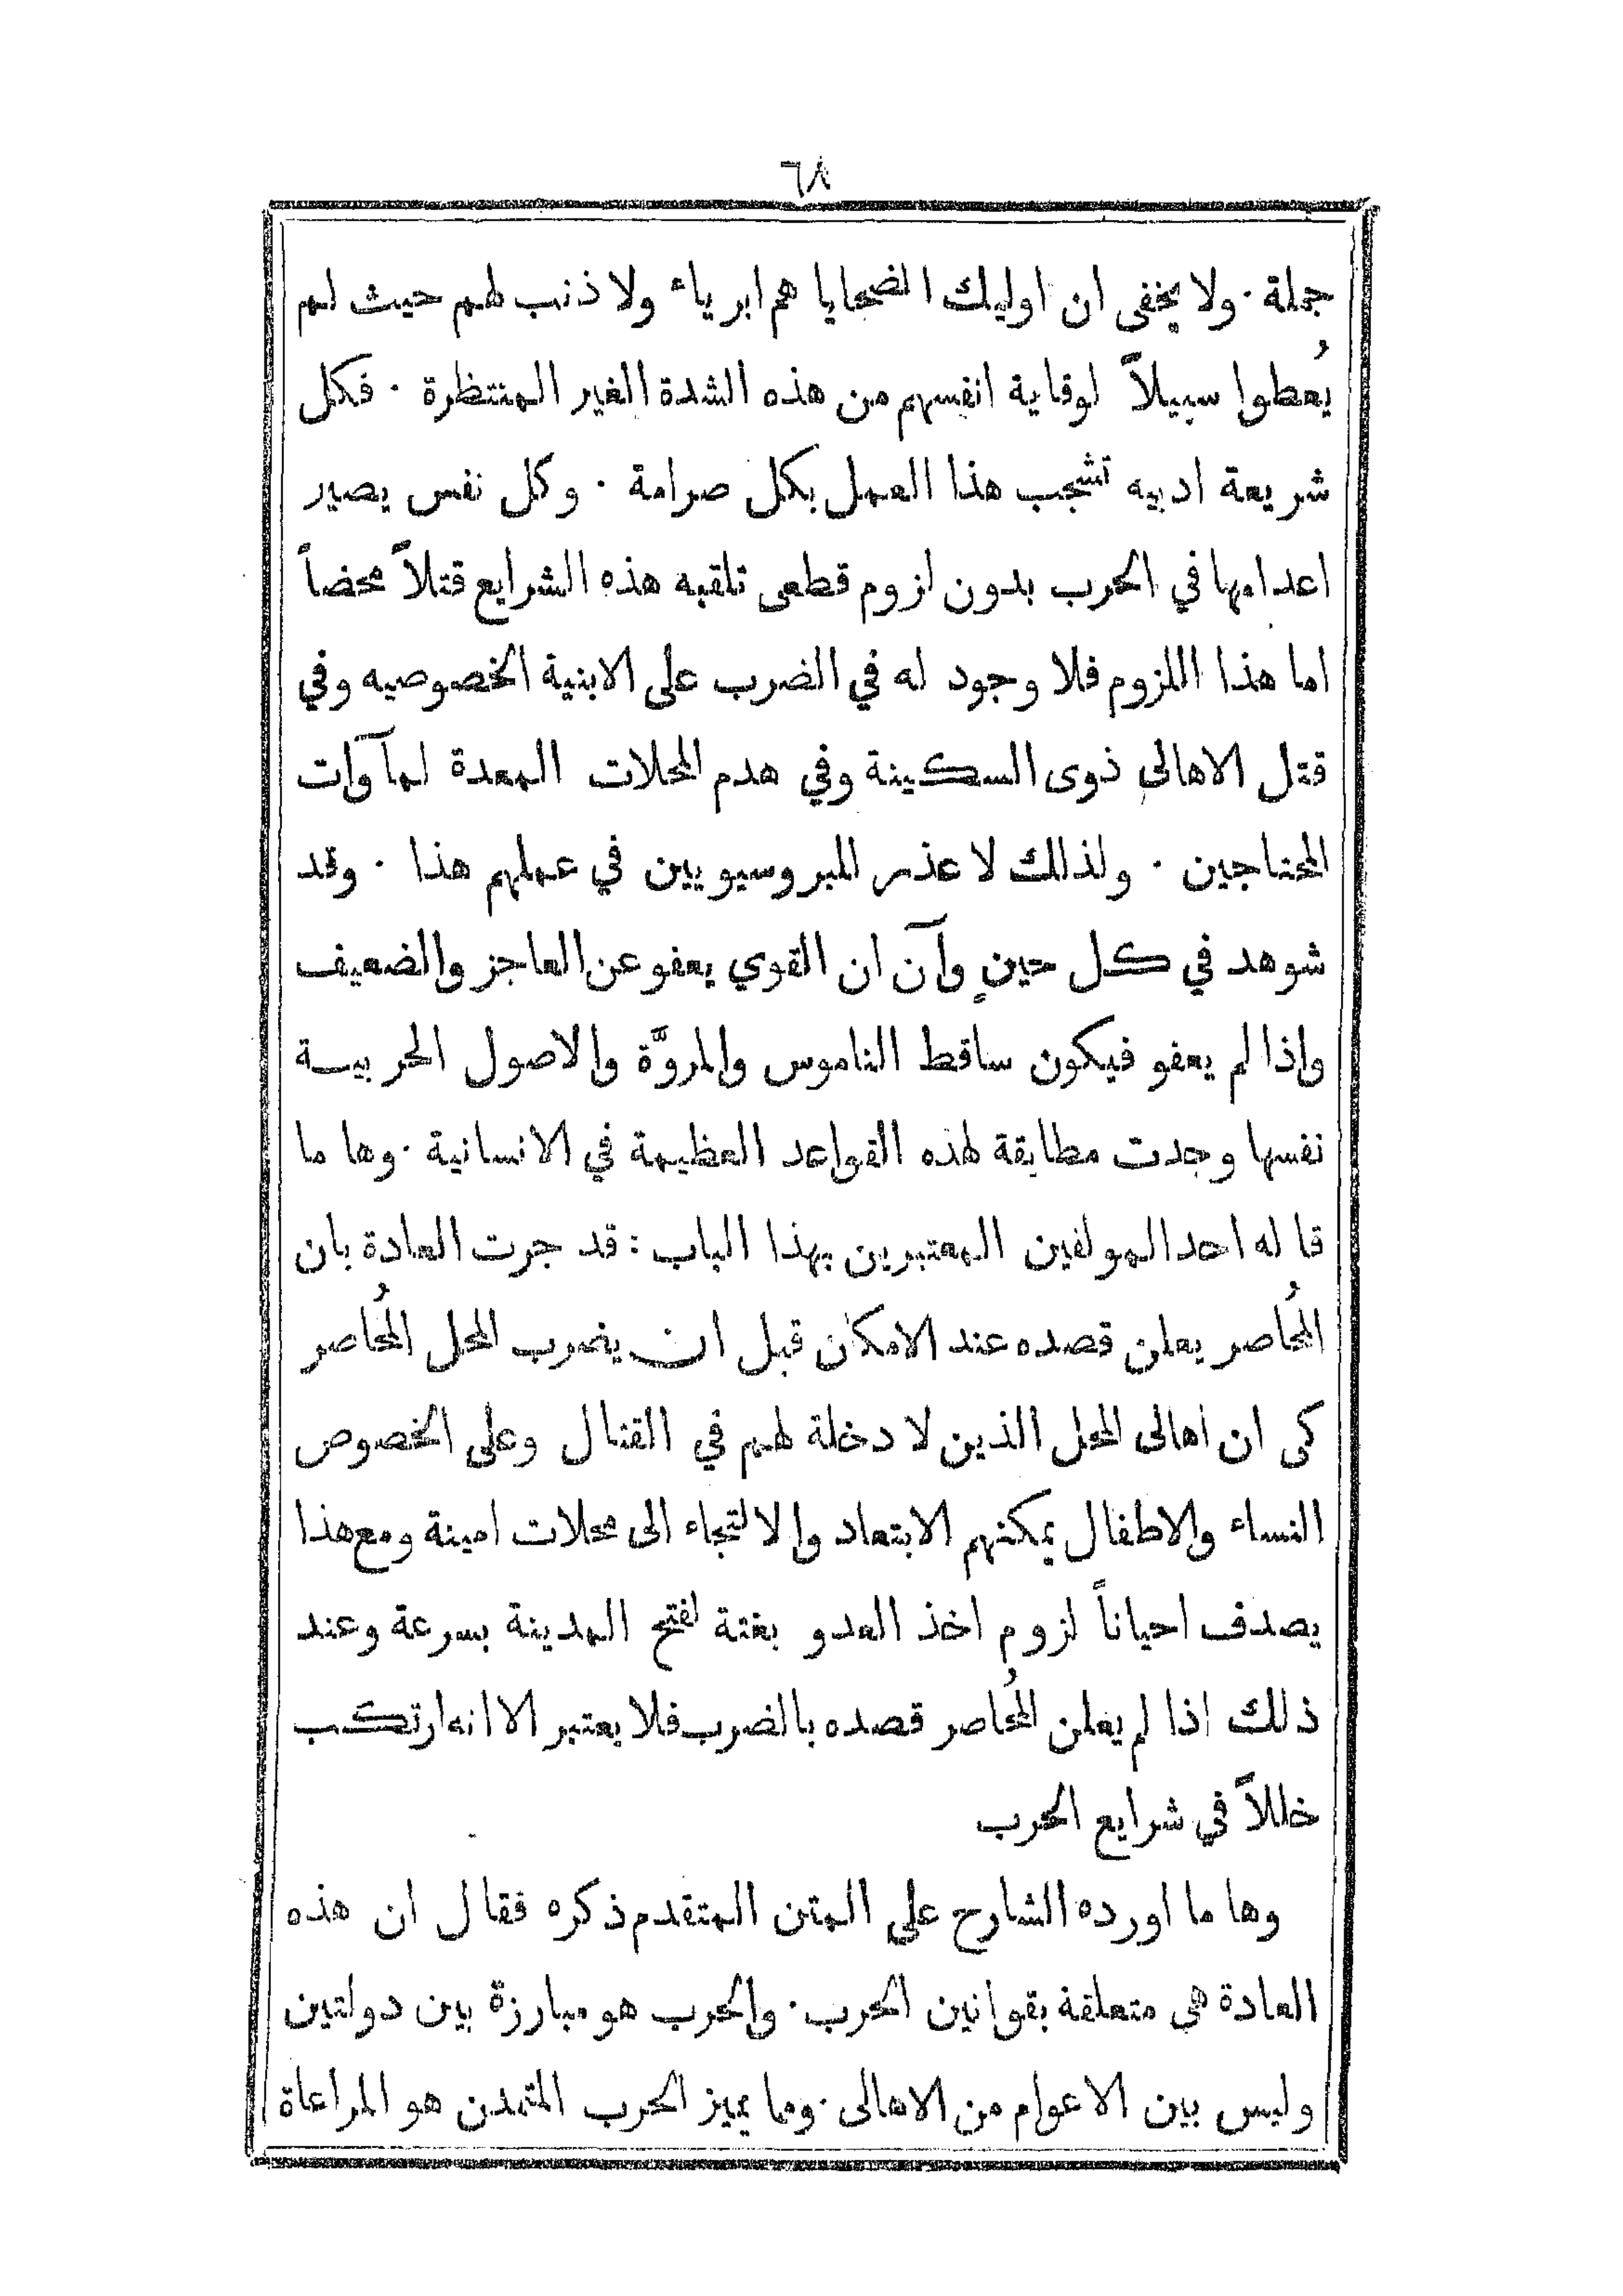 ٦٨
جملة · ولا يخفى ان اوليك الضحايا هم ابرياء ولا ذنب لهم حيث لم
يُعطوا سبيلاً لوقاية انفسهم من هذه الشدة الغير المنتظرة · فكل
شريعة ادبيه تشجب هذا العمل بكل صرامة · وكل نفس يصير
اعدامها في الحرب بدون لزوم قطعى تلقبه هذه الشرايع قتلاً محضاً
اما هذا اللزوم فلا وجود له في الضرب على الابنية الخصوصيه وفي
قتل الاهالى ذوى السكينة وفي هدم المحلات المعدة لمآوات
المحتاجين · ولذلك لا عذر للبروسيويين في عملهم هذا · وقد
شوهد في كل حينٍ وآن ان القوي يعفو عن العاجز والضعيف
واذا لم يعفو فيكون ساقط الناموس والمروَّة والاصول الحربيـة
نفسها وجدت مطابقة لهذه القواعد العظيمة في الانسانية · وها ما
قاله احد المولفين المعتبرين بهذا الباب : قد جرت العادة بان
المُحاصر يعلن قصده عند الامكان قبل ان يضرب المحل المُحاصر
كى ان اهالى المحل الذين لا دخلة لهم في القتال وعلى الخصوص
النساء والاطفال يمكنهم الابتعاد والالتجاء الى محلات امينة ومع هذا
يصدف احياناً لزوم اخذ العدو بغتة لفتح المدينة بسرعة وعند
ذلك اذا لم يعلن المُحاصر قصده بالضرب فلا يعتبر الا انه ارتكب
خللاً في شرايع الحرب
وها ما اورده الشارح على المتن المتقدم ذكره فقال ان هذه
العادة هى متعلقة بقوانين الحرب · والحرب هو مبارزة بين دولتين
وليس بين الاعوام من الاهالى · وما يميز الحرب المتمدن هو المراعاة